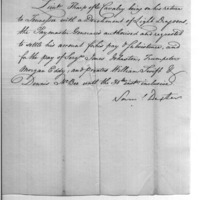 Lieut. Tharp of the Cavalry being on his return
to Tennessee with a Detachment of Light Dragoons,
the Paymaster General is authorised and requested
to settle his account for his pay & subsistence, and
for the pay of Serg.t James Johnston, Trumpeter
Morgan Eddy, and privates William Swift &
Dennis McBee until the 30th inst. inclusive